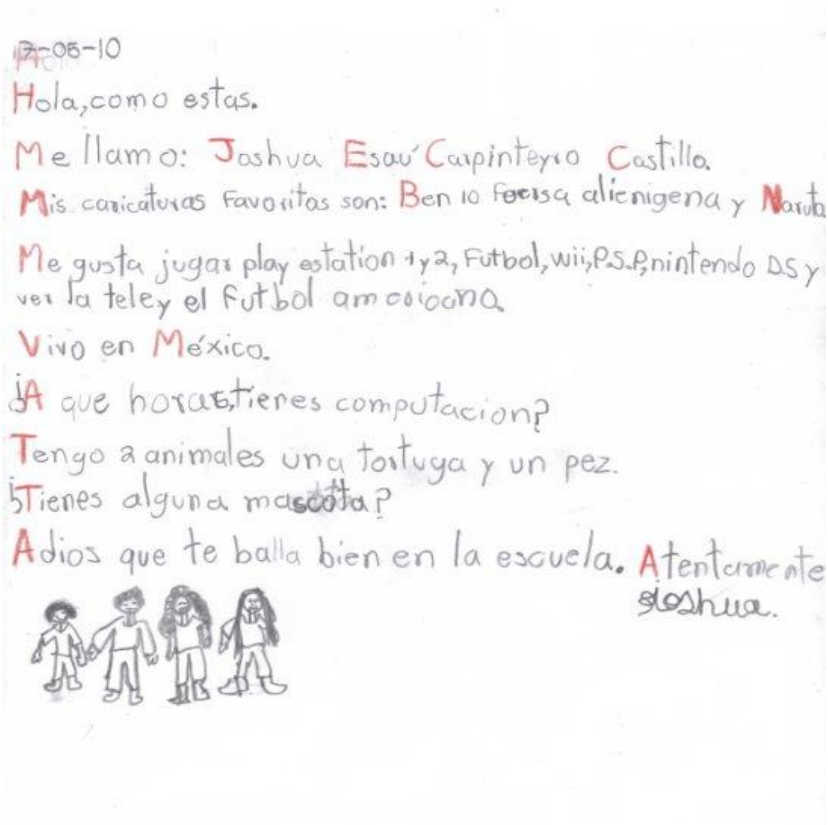 17-05-10
Hola, como estas.
Me llamo: Joshua Esaú Carpinteyro Castillo.
Mis caricaturas favoritas son: Ben 10 fuersa alienigena y Naruto
Me gusta jugar play estation 1 y 2, Futbol, wii, P.S.P, nintendo DS y
ver la tele y el futbol americano.
Vivo en México.
¿A que horas, tienes computacion?
Tengo 2 animales una tortuga y un pez.
¿Tienes alguna mascotta?
Adios que te balla bien en la escuela. Atentamente
Joshua.